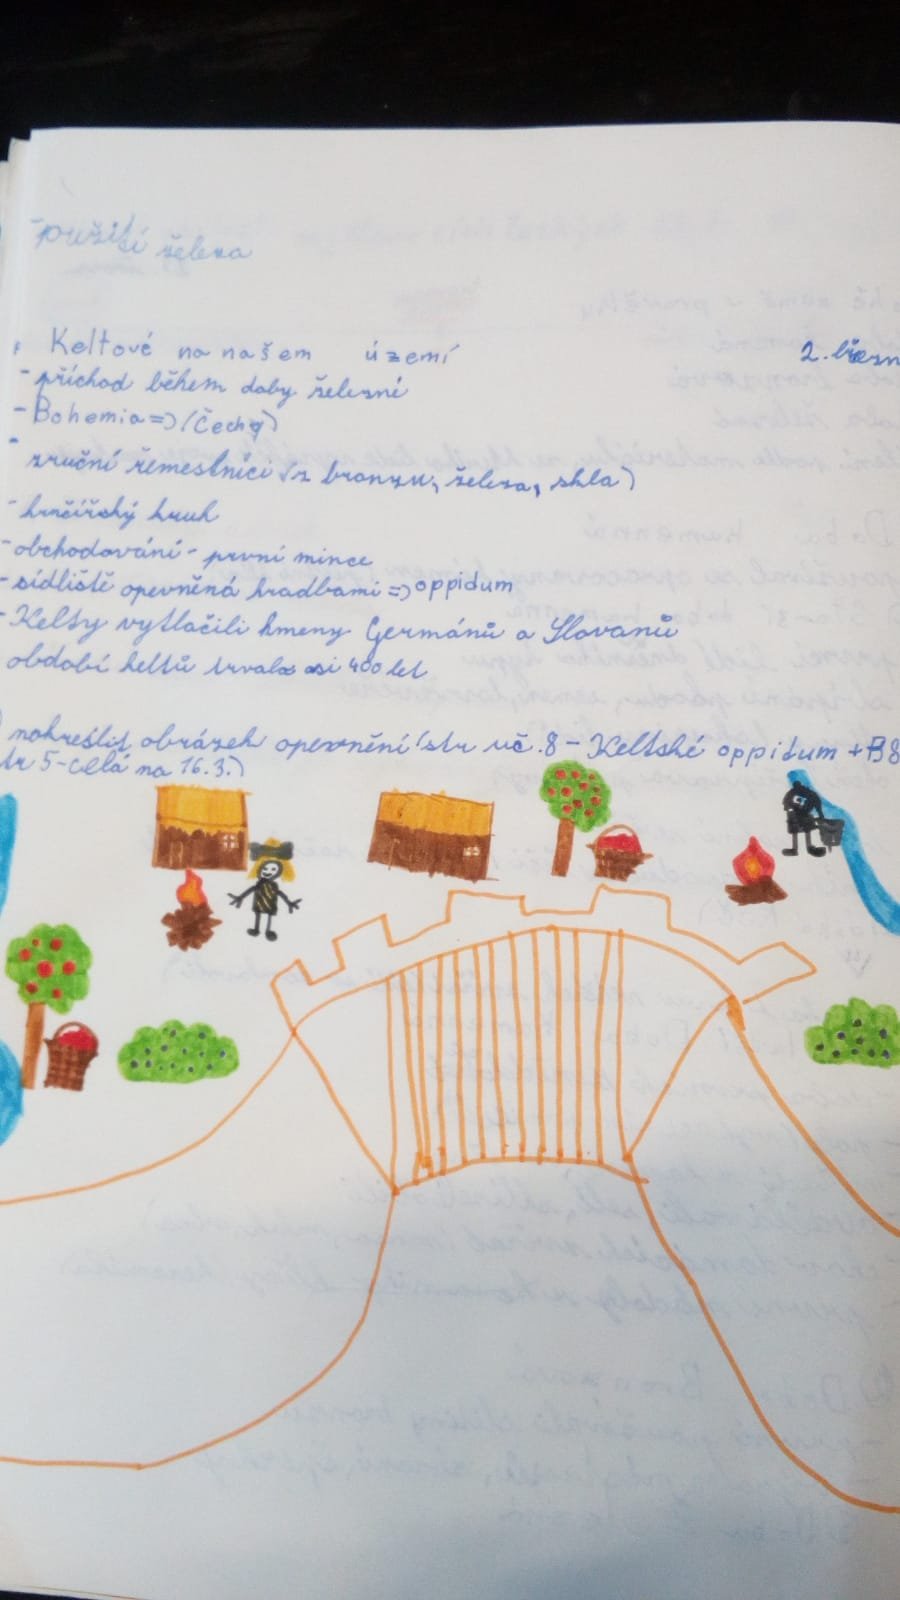 - použití železa
Keltové na našem území 2. březn
- příchod během doby železné
- Bohemia => (Čechy)
- zruční řemeslníci (z bronzu, železa, skla)
- hrnčířský kruh
- obchodování - první mince
- sídliště opevněná hradbami => oppidum
- Kelty vytlačili kmeny Germánů a Slovanů
období keltů trvalo asi 400 let
nakreslit obrázek opevnění (str uč. 8 - Keltské oppidum + B8
tr 5 - celá na 16.3.)